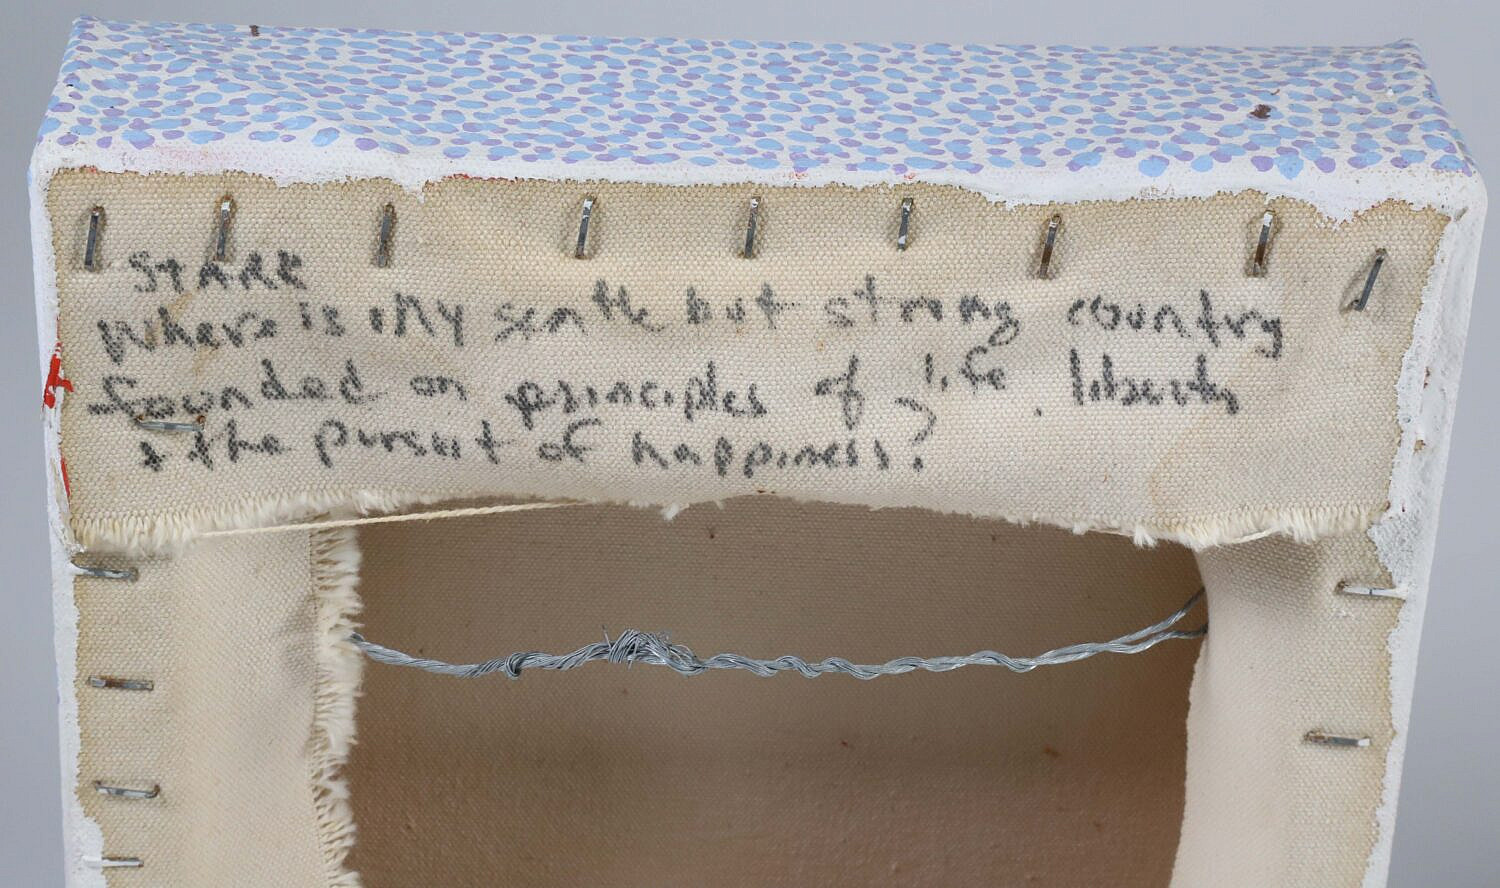 STARK
where is my gentle but strong country
founded on principles of life, liberty
& the pursuit of happiness?